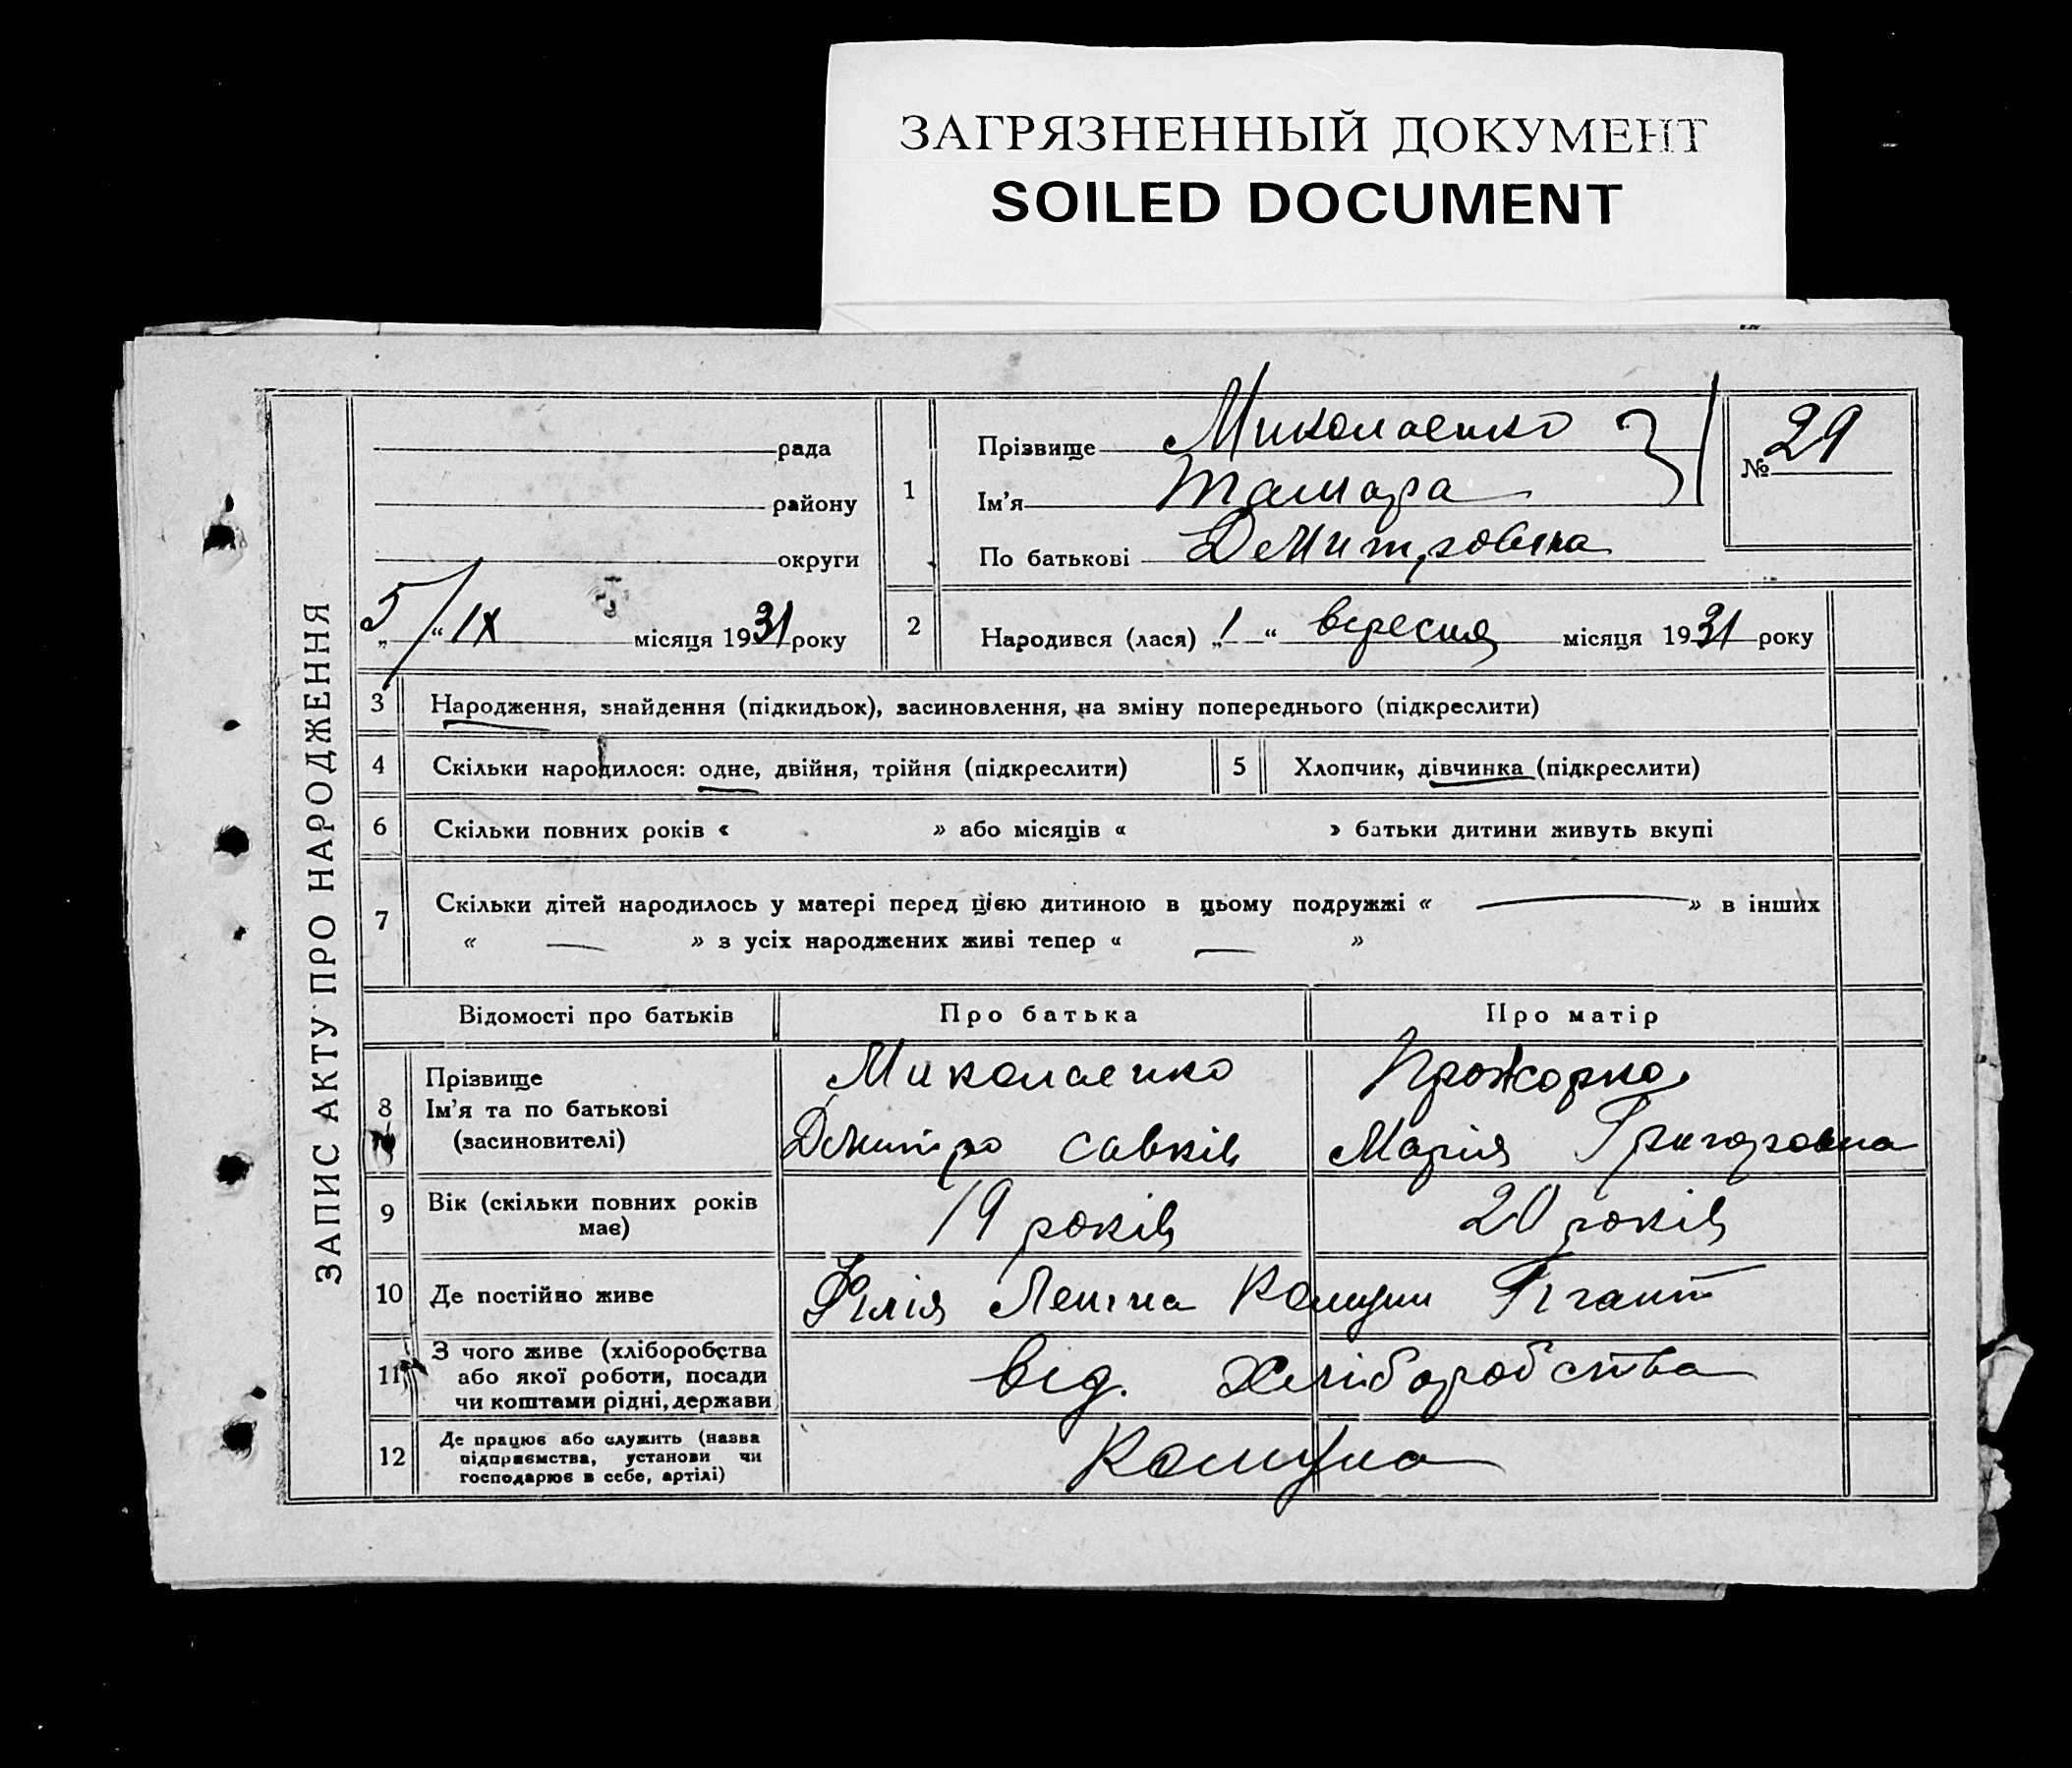 ЗАГРЯЗНЕННЫЙ ДОКУМЕНТ
SOILED DOCUMENT
ЗАПИС АКТУ ПРО НАРОДЖЕННЯ
рада
району
округи
„5“ IX місяця 1931 року
1
Прізвище Миколаенко
Ім'я Тамара
По батькові Дмитровна
№ 29
2 Народився (лася) „1“ вересня місяця 1931 року
3 Народження, знайдення (підкидьок), засиновлення, на зміну попереднього (підкреслити)
4 Скільки народилося: одне, двійня, трійня (підкреслити) 5 Хлопчик, дівчинка (підкреслити)
6 Скільки повних років « » або місяців « » батьки дитини живуть вкупі
7 Скільки дітей народилось у матері перед цією дитиною в цьому подружжі « — » в інших
« — » з усіх народжених живі тепер « — »
Відомості про батьків Про батька Про матір
8
Прізвище Миколаенко
Ім'я та по батькові
(засиновителі) Дмитро Савків Марія Григоровна
9 Вік (скільки повних років має) 19 років 20 років
10 Де постійно живе Філія Леніна Комуни Гігант
11 З чого живе (хліборобства
або якої роботи, посади
чи коштами рідні, держави від. Хліборобства
12 Де працює або служить (назва
підприємства, установи чи
господарює в себе, артілі) Комуна